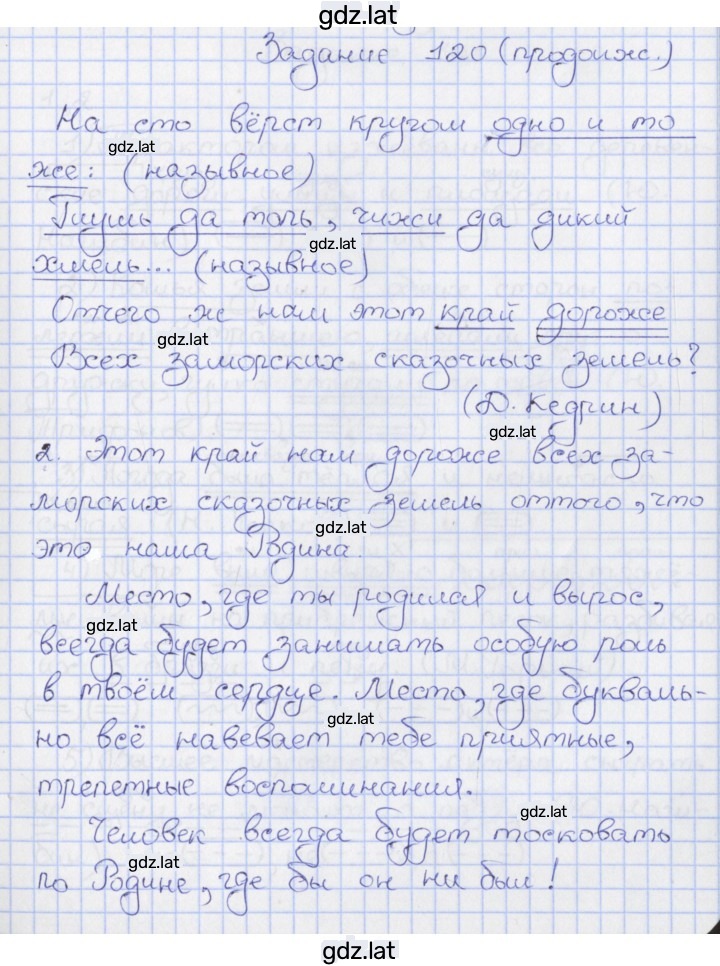 gdz.lat
Задание 120 (продолж.)
На сто вёрст кругом одно и то
gdz.lat
же: (назывное)
Глушь да топь, чижи да дикий
gdz.lat
хмель... (назывное)
Отчего ж нам этот край дороже
gdz.lat
Всех заморских сказочных земель?
(Д. Кедрин)
gdz.lat
2. Этот край нам дороже всех за-
морских сказочных земель оттого, что
gdz.lat
это наша Родина.
Место, где ты родился и вырос,
gdz.lat
всегда будет занимать особую роль
в твоём сердце. Место, где букваль-
gdz.lat
но всё навевает тебе приятные,
трепетные воспоминания.
gdz.lat
Человек всегда будет тосковать
gdz.lat
по Родине, где бы он ни был!
gdz.lat